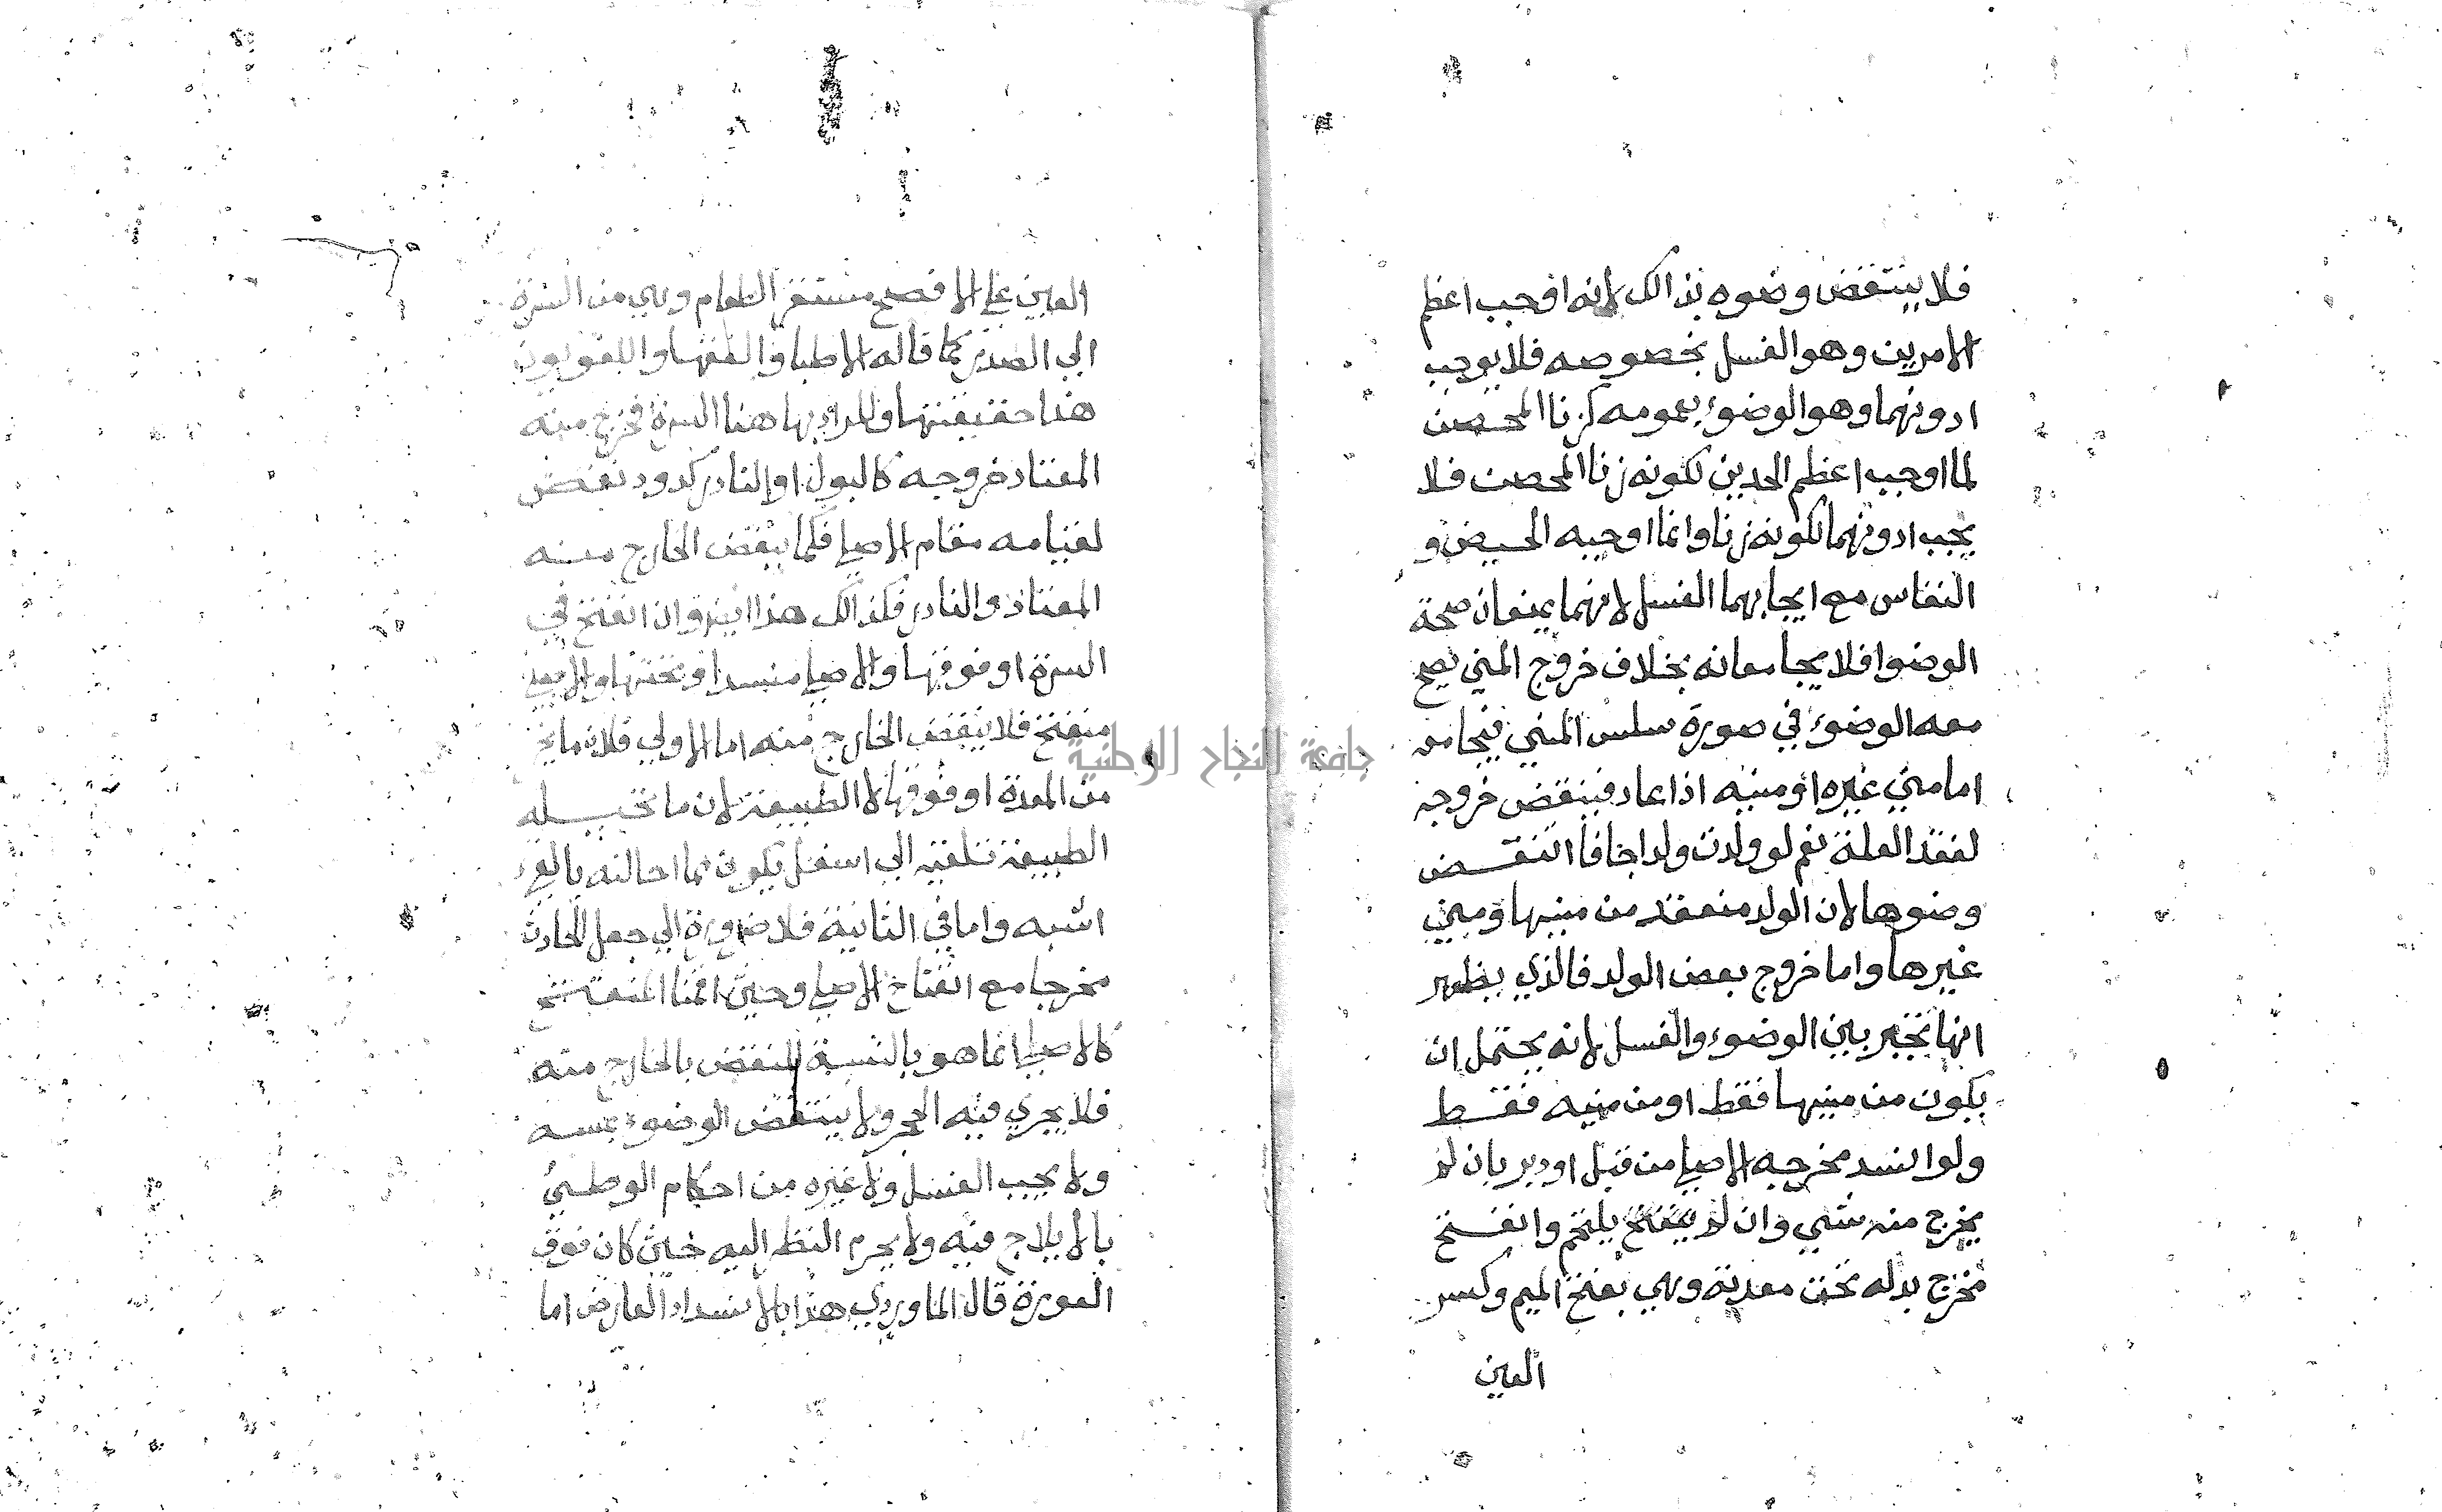 فلا ينتقض وضوه بذالك لانه اوجب اعظم
الامرين وهو الغسل بخصوصه فلا يوجب
ادونهما وهو الوضوء بعمومه كزنا المحصن
لما اوجب اعظم الحدين لكونه زنا المحصن فلا
يجب ادونهما لكونه زنا وانما اوجبه الحيض و
النفاس مع ايجابهما الغسل لانهما يمنعان صحة
الوضوا فلا يجامعانه بخلاف خروج المني يصح
معه الوضوء في صورة سلس المني فيجامعه
اما مني غيره او منيه اذا عاد فينقض خروجه
لفقد العلة نعم لو ولدت ولدا جافا انتقض
وضوها لان الولد منعقد من منيها ومني
غيرها واما خروج بعض الولد فالذي يظهر
انها تخير بين الوضوء والغسل لانه يحتمل ان
يكون من منيها فقط او من منيه فقط
ولو انسد مخرجه الاصلي من قبل او دبر بان لم
يخرج منه شيي وان لم يلتحم وانفتح
مخرج بدله تحت معدته وهي بفتح الميم وكسر
العين
العين علي الافصح مستقر الطعام وهي من السرة
الي الصدر كما قاله الاطبا والفقها واللغويون
هذا حقيقتها والمراد بها هنا السرة فخرج منه
المعتاد خروجه كالبول او النادر كدود نقض
لقيامه مقام الاصلي فكما ينقض الخارج منه
المعتاد والنادر فكذالك هذا ايضا وان انفتح في
السرة او فوقها والاصلي منسد او تحتها والاصلي
منفتح فلا ينقض الخارج منه اما الاولي فلان ما يخرج
من المعدة او فوقها لا الطبيعة لان ما تحيله
الطبيعة تلقيه الي اسفل يكون مما احالته بالقي
اشبه واما في الثانية فلا ضرورة الي جعل الحادث
مخرجا مع انفتاح الاصلي وحيث اقمنا المنفتح
كالاصلي انما هو بالنسبة للنقض بالخارج منه
فلا يجري فيه الحجر ولا ينتقض الوضوء بمسه
ولا يجب الغسل ولا غيره من احكام الوطيئ
بالايلاج فيه ولا يحرم النظر اليه حيث كان فوق
العورة قال الماوردي هذا بالانسداد العارض اما
جامعة النجاح الوطنية